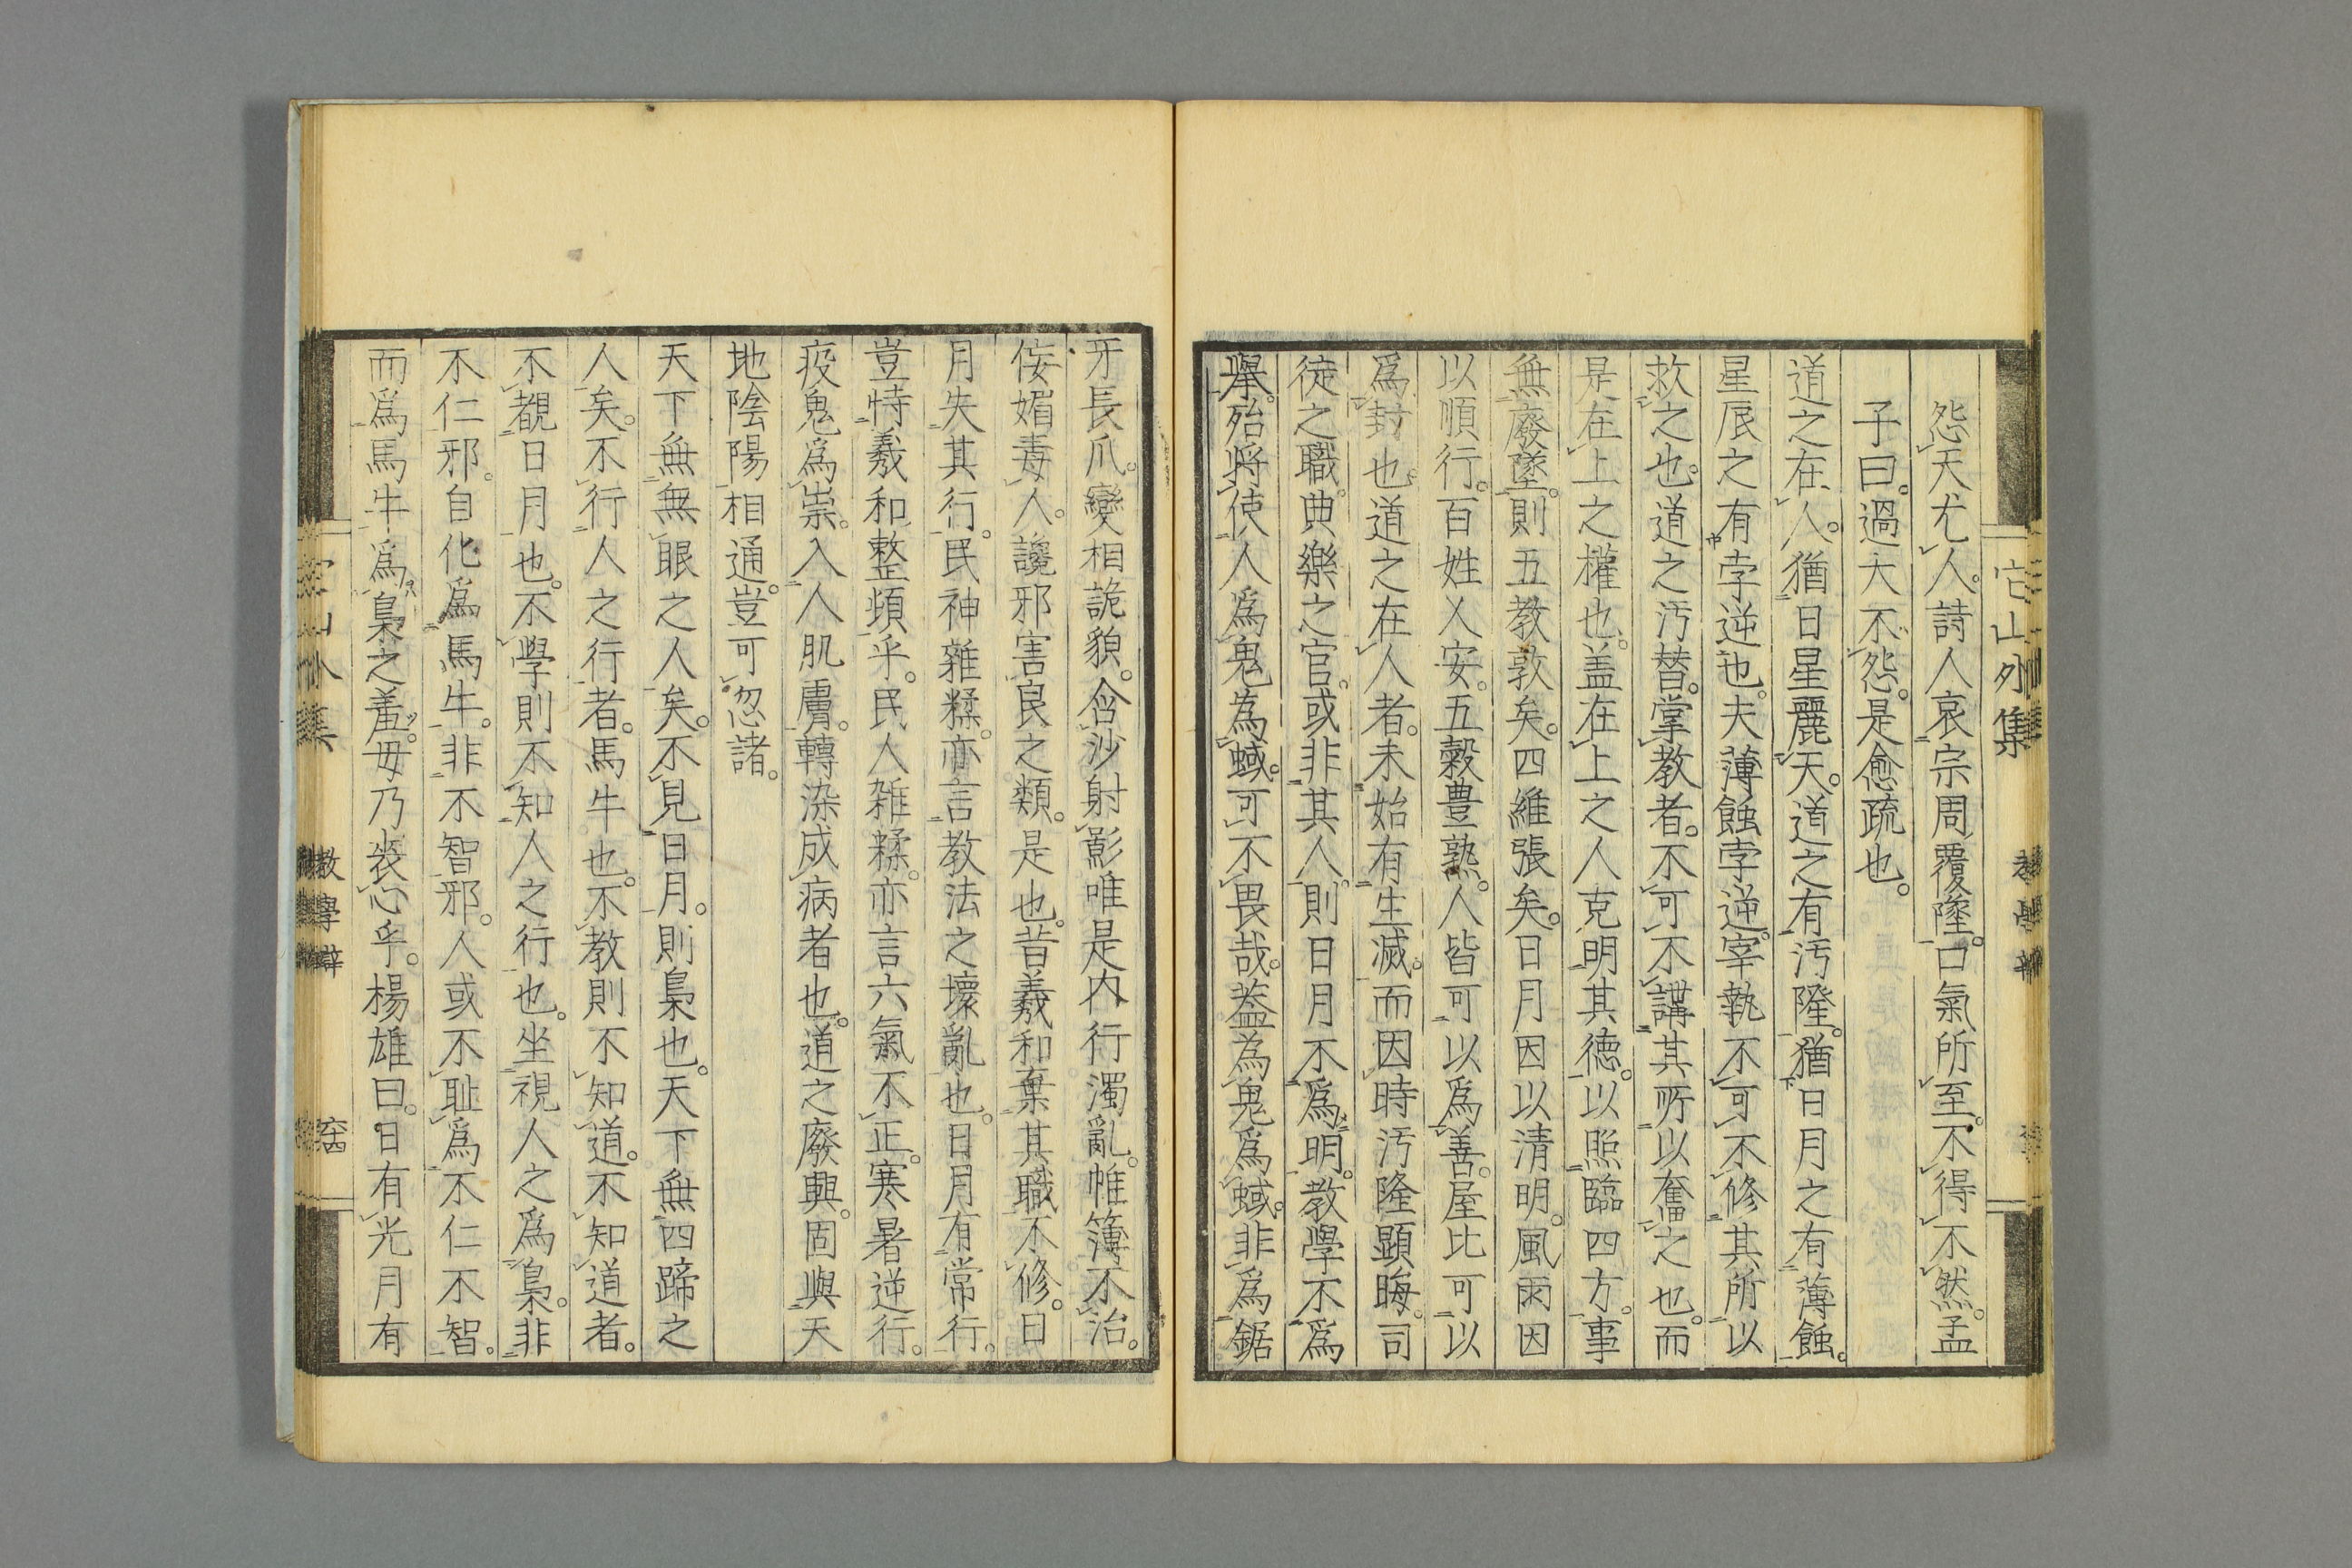 怨天尤人。詩人哀宗周覆墜。口氣所至。不得不然。孟
子曰。過大不怨。是愈疏也。
道之在人。猶日星麗天。道之有汚隆。猶日月之有薄蝕。
星辰之有孛逆也。夫薄蝕孛逆。宰執不可不修其所以
救之也。道之汚替。掌教者。不可不講其所以奮之也。而
是在上之權也。盖在上之人克明其德。以照臨四方。事
無廢墜。則五教敦矣。四維張矣。日月因以清明。風雨因
以順行。百姓乂安。五穀豊熟。人皆可以爲善。屋比可以
爲封也。道之在人者。未始有生滅。而因時汚隆顯晦。司
徒之職。典樂之官。或非其人。則日月不爲明。教學不爲
擧。殆將使人爲鬼爲蜮。可不畏哉。葢爲鬼爲蜮。非爲鋸
牙長爪。變相詭貌。含沙射影。唯是内行濁亂。帷簿不治。
佞媚毒人。讒邪害良之類。是也。昔羲和棄其職不修。日
月失其行。民神雜糅。亦言教法之壞亂也。日月有常行。
豈恃羲和整頓乎。民人雑糅。亦言六氣不正。寒暑逆行。
疫鬼爲崇。入人肌膚。轉染成病者也。道之廢興。固與天
地陰陽相通。豈可忽諸。
天下無無眼之人矣。不見日月。則梟也。天下無四蹄之
人矣。不行人之行者。馬牛也。不教則不知道。不知道者。
不覩日月也。不學則不知人之行也。坐視人之爲梟。非
不仁邪。自化爲馬牛。非不智邪。人或不耻爲不仁不智。
而爲馬牛爲梟之羞。毋乃喪心乎。楊雄曰。日有光月有
它山外集
教學辯